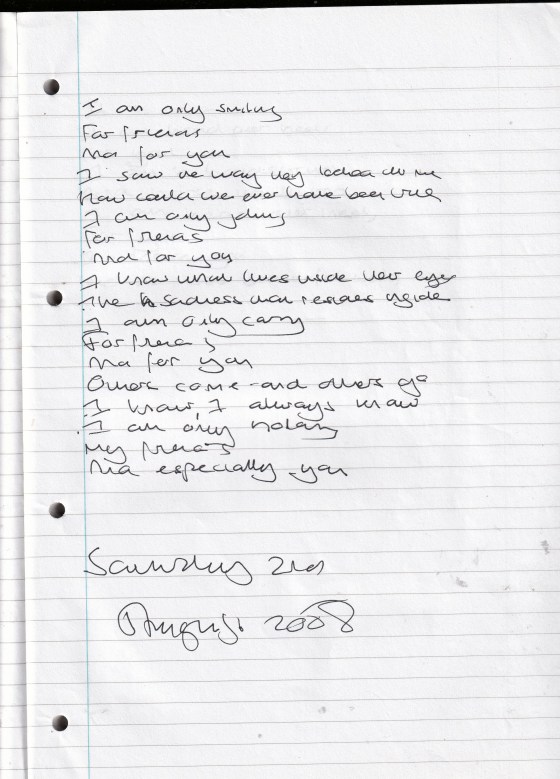 I am only smiling
For friends
And for you
I saw the way they looked at me
How could we ever have been true
I am only joking
For friends
And for you
I know what lives inside her eyes
The sadness that resides inside
I am only
For friends
And for you
Others come and others go
I know, I always know
I am only holding
My friends
And especially you
Saturday 2nd
August 2008